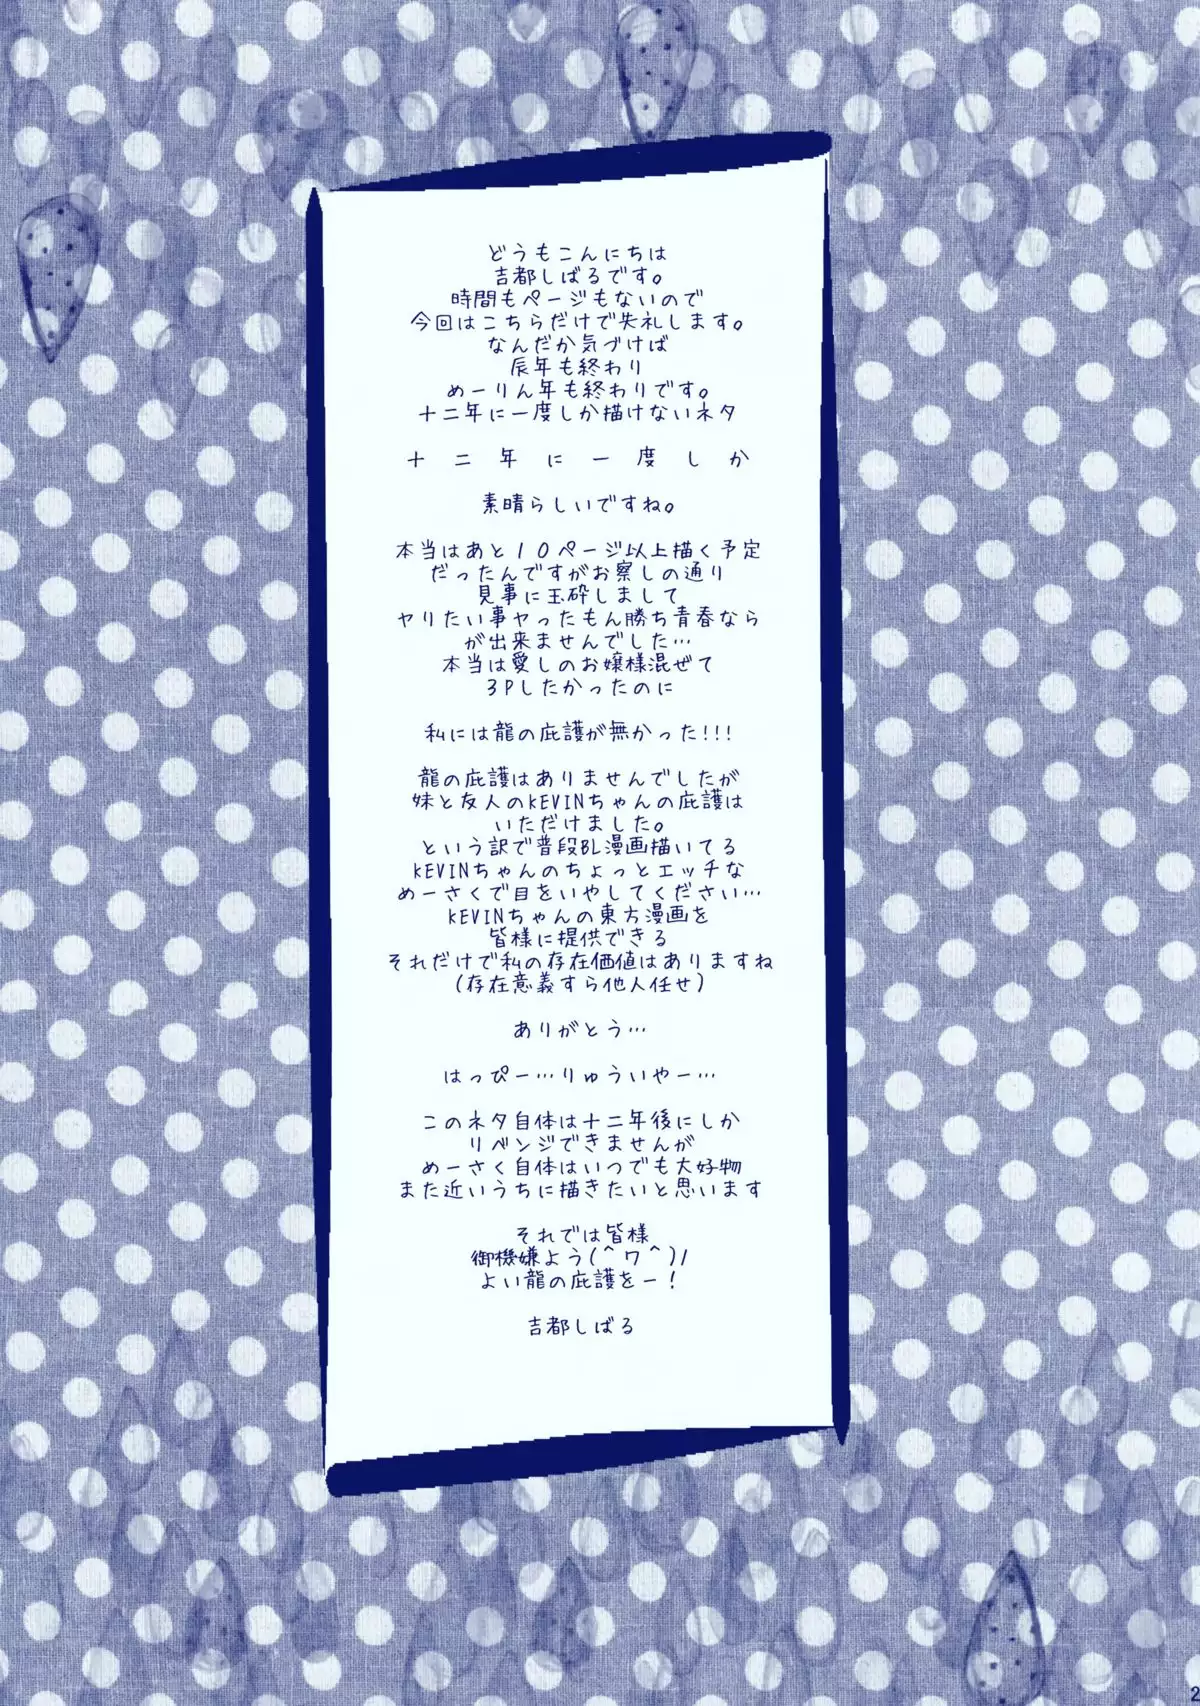 どうもこんにちは
吉都しばるです。
時間もページもないので
今回はこちらだけで失礼します。
なんだか気づけば
辰年も終わり
めーりん年も終わりです。
十二年に一度しか描けないネタ
十二年に一度しか
素晴らしいですね。
本当はあと10ページ以上描く予定
だったんですがお察しの通り
見事に玉砕しまして
ヤりたい事ヤったもん勝ち青春なら
が出来ませんでした…
本当は愛しのお嬢様混ぜて
3Pしたかったのに
私には龍の庇護が無かった!!!
龍の庇護はありませんでしたが
妹と友人のKEVINちゃんの庇護は
いただけました。
という訳で普段BL漫画描いてる
KEVINちゃんのちょっとエッチな
めーさくで目をいやしてください…
KEVINちゃんの東方漫画を
皆様に提供できる
それだけで私の存在価値はありますね
(存在意義すら他人任せ)
ありがとう…
はっぴー…りゅういやー…
このネタ自体は十二年後にしか
リベンジできませんが
めーさく自体はいつでも大好物
また近いうちに描きたいと思います
それでは皆様
御機嫌よう(^ワ^)/
よい龍の庇護をー!
吉都しばる
2